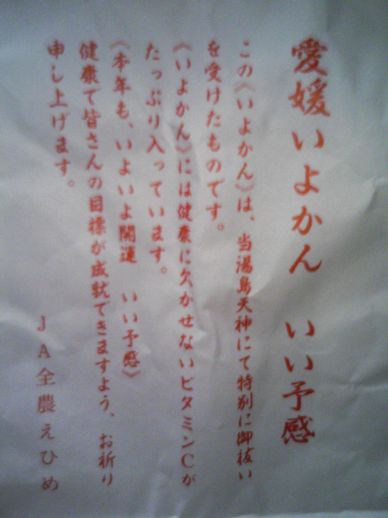 愛媛いよかん　いい予感
この《いよかん》は、当湯島天神にて特別に御祓い
を受けたものです。
《いよかん》には健康に欠かせないビタミンCが
たっぷり入っています。
《本年も、いよいよ開運　いい予感》
健康で皆さんの目標が成就できますよう、お祈り
申し上げます。
JA全農えひめ